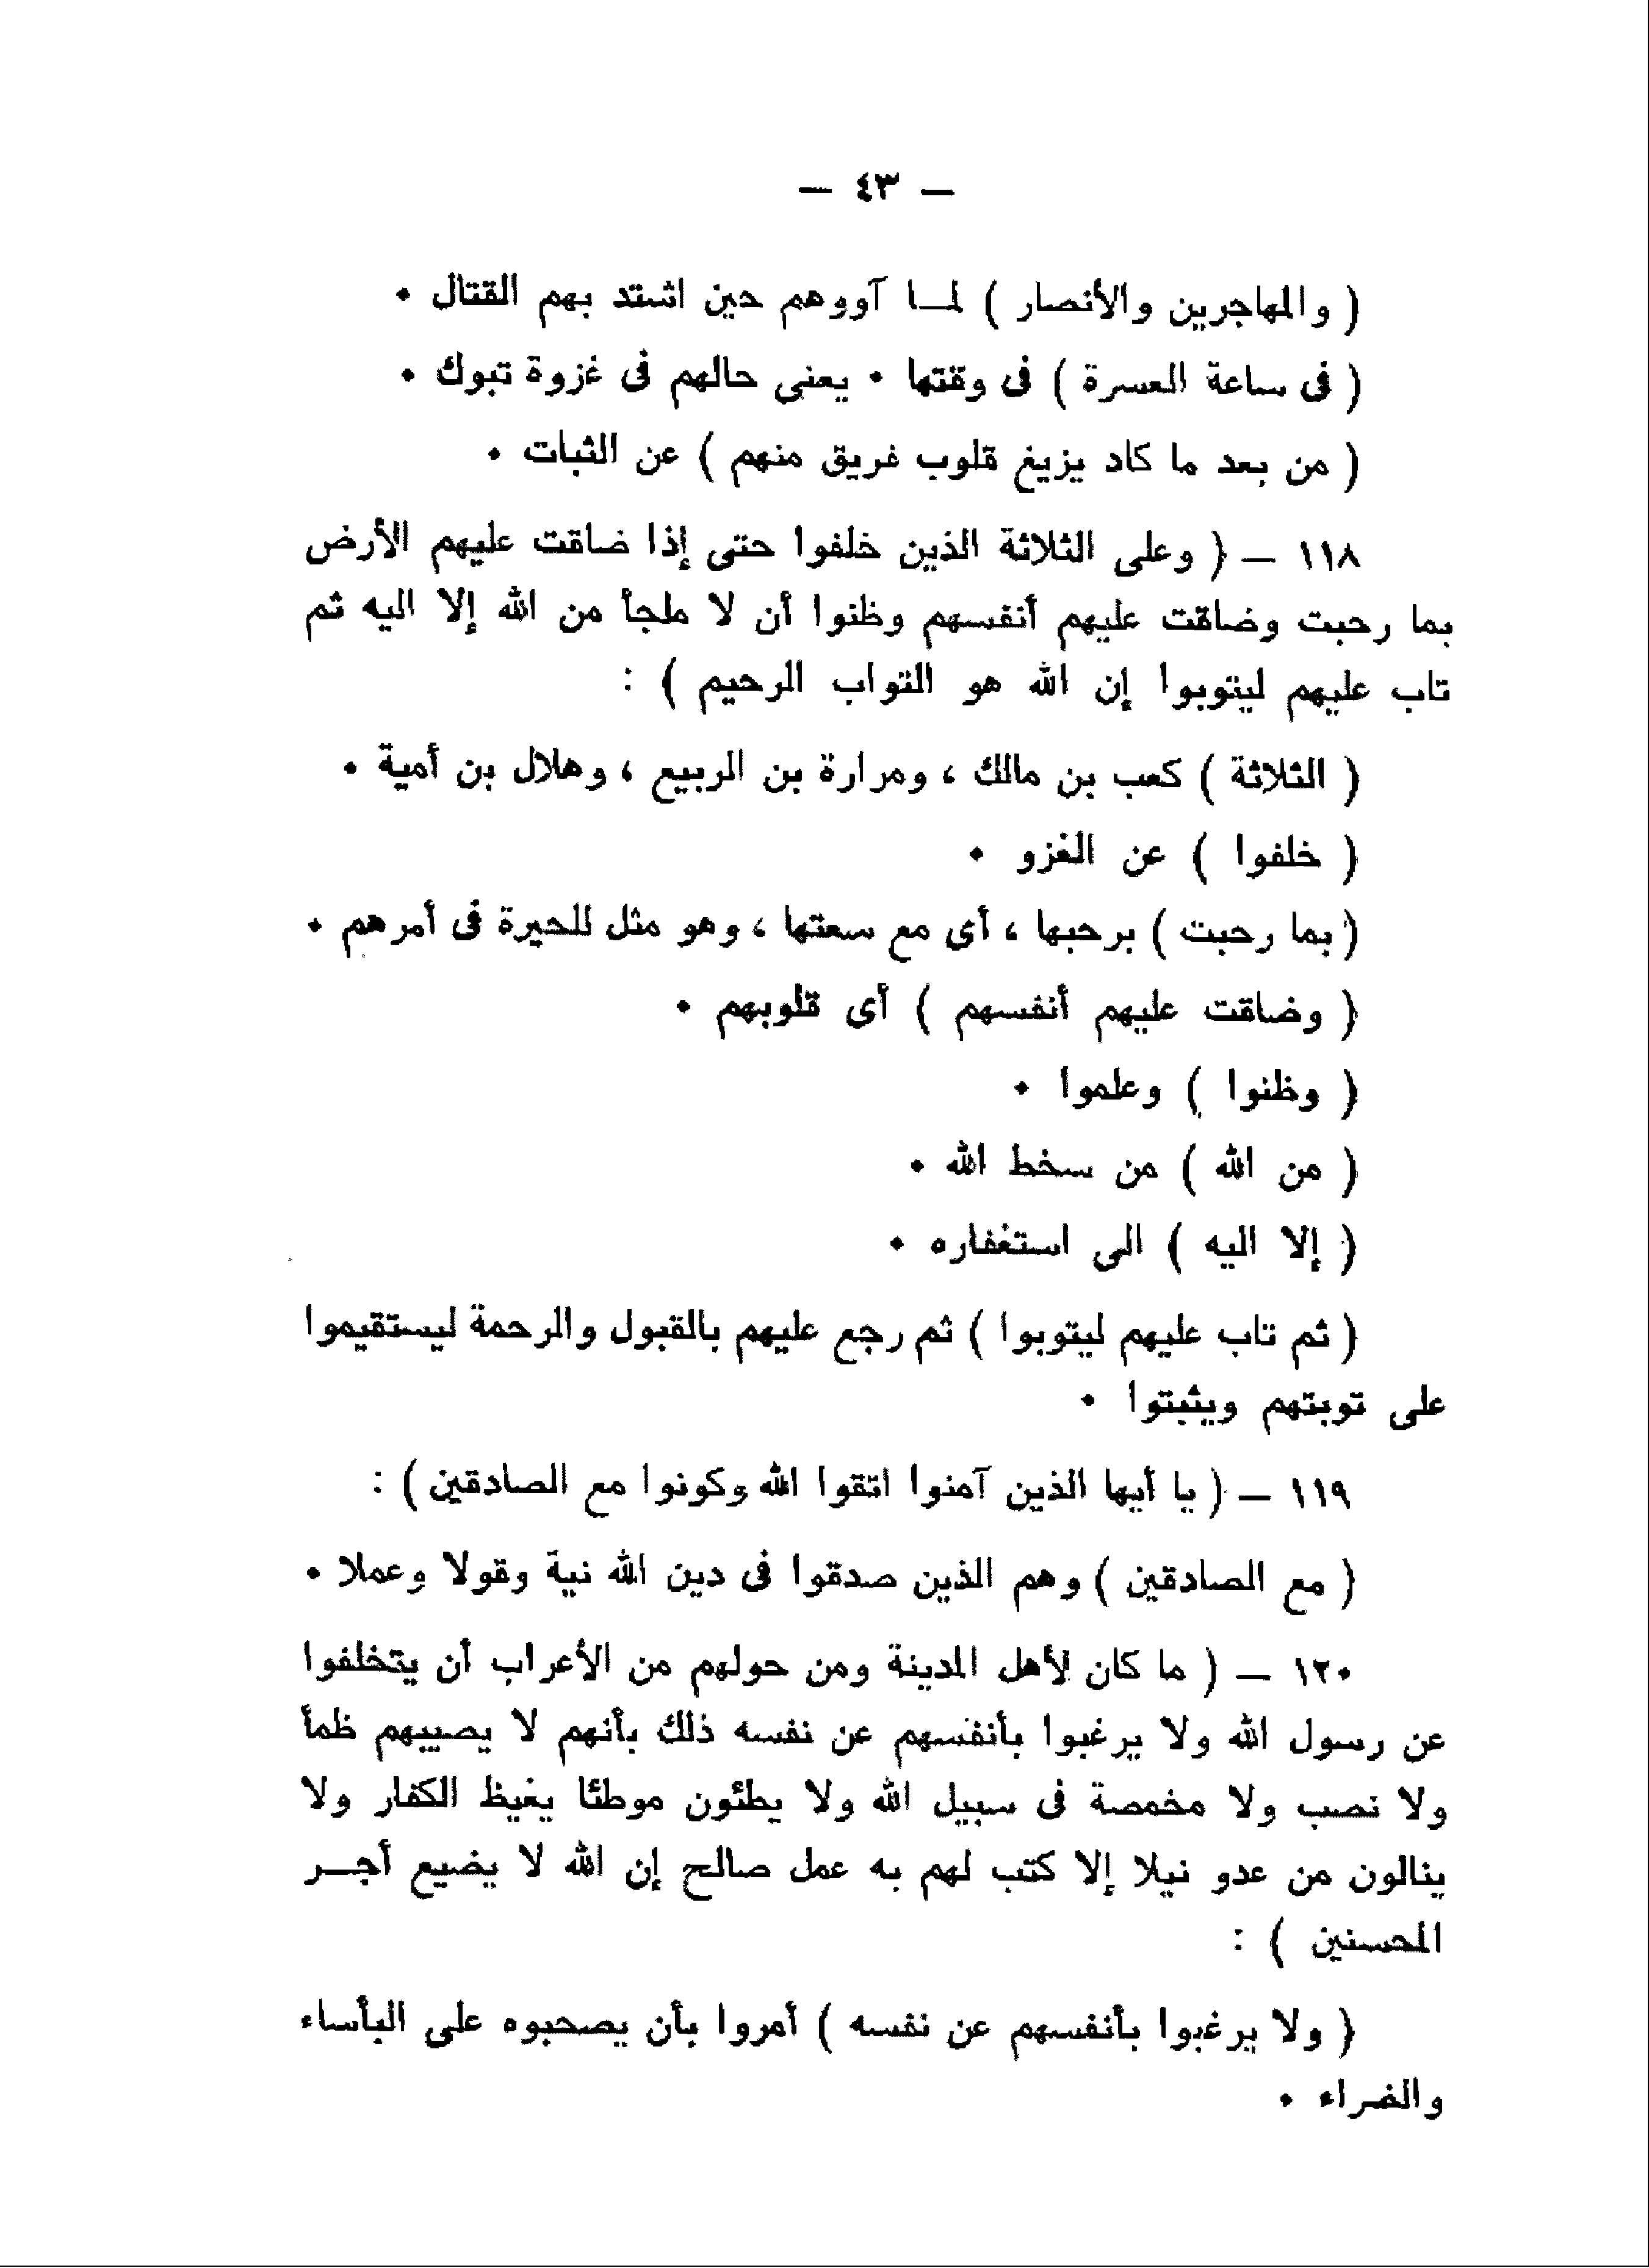 — ٤٣ —
( والمهاجرين والأنصار ) لمـا آووهم حين اشتد بهم القتال ٠
( فى ساعة العسرة ) فى وقتها ٠ يعنى حالهم فى غزوة تبوك ٠
( من بعد ما كاد يزيغ قلوب فريق منهم ) عن الثبات ٠
١١٨ — ( وعلى الثلاثة الذين خلفوا حتى إذا ضاقت عليهم الأرض
بما رحبت وضاقت عليهم أنفسهم وظنوا أن لا ملجأ من الله إلا اليه ثم
تاب عليهم ليتوبوا إن الله هو التواب الرحيم ) :
( الثلاثة ) كعب بن مالك ، ومرارة بن الربيع ، وهلال بن أمية ٠
( خلفوا ) عن الغزو ٠
( بما رحبت ) برحبها ، أى مع سعتها ، وهو مثل للحيرة فى أمرهم ٠
( وضاقت عليهم أنفسهم ) أى قلوبهم ٠
( وظنوا ) وعلموا ٠
( من الله ) من سخط الله ٠
( إلا اليه ) الى استغفاره ٠
( ثم تاب عليهم ليتوبوا ) ثم رجع عليهم بالقبول والرحمة ليستقيموا
على توبتهم ويثبتوا ٠
١١٩ — ( يا أيها الذين آمنوا اتقوا الله وكونوا مع الصادقين ) :
( مع الصادقين ) وهم الذين صدقوا فى دين الله نية وقولا وعملا ٠
١٢٠ — ( ما كان لأهل المدينة ومن حولهم من الأعراب أن يتخلفوا
عن رسول الله ولا يرغبوا بأنفسهم عن نفسه ذلك بأنهم لا يصيبهم ظمأ
ولا نصب ولا مخمصة فى سبيل الله ولا يطئون موطئا يغيظ الكفار ولا
ينالون من عدو نيلا إلا كتب لهم به عمل صالح إن الله لا يضيع أجـر
المحسنين ) :
( ولا يرغبوا بأنفسهم عن نفسه ) أمروا بأن يصحبوه على البأساء
والضراء ٠